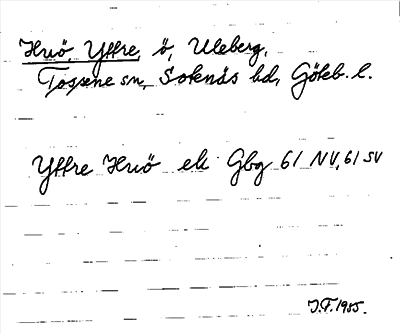 Huö, Yttre ö, Uleberg,
Tossene sn, Sotenäs hd, Göteb. l.
Yttre Huö ek Gbg 61 NV, 61 SV
J.F. 1955.